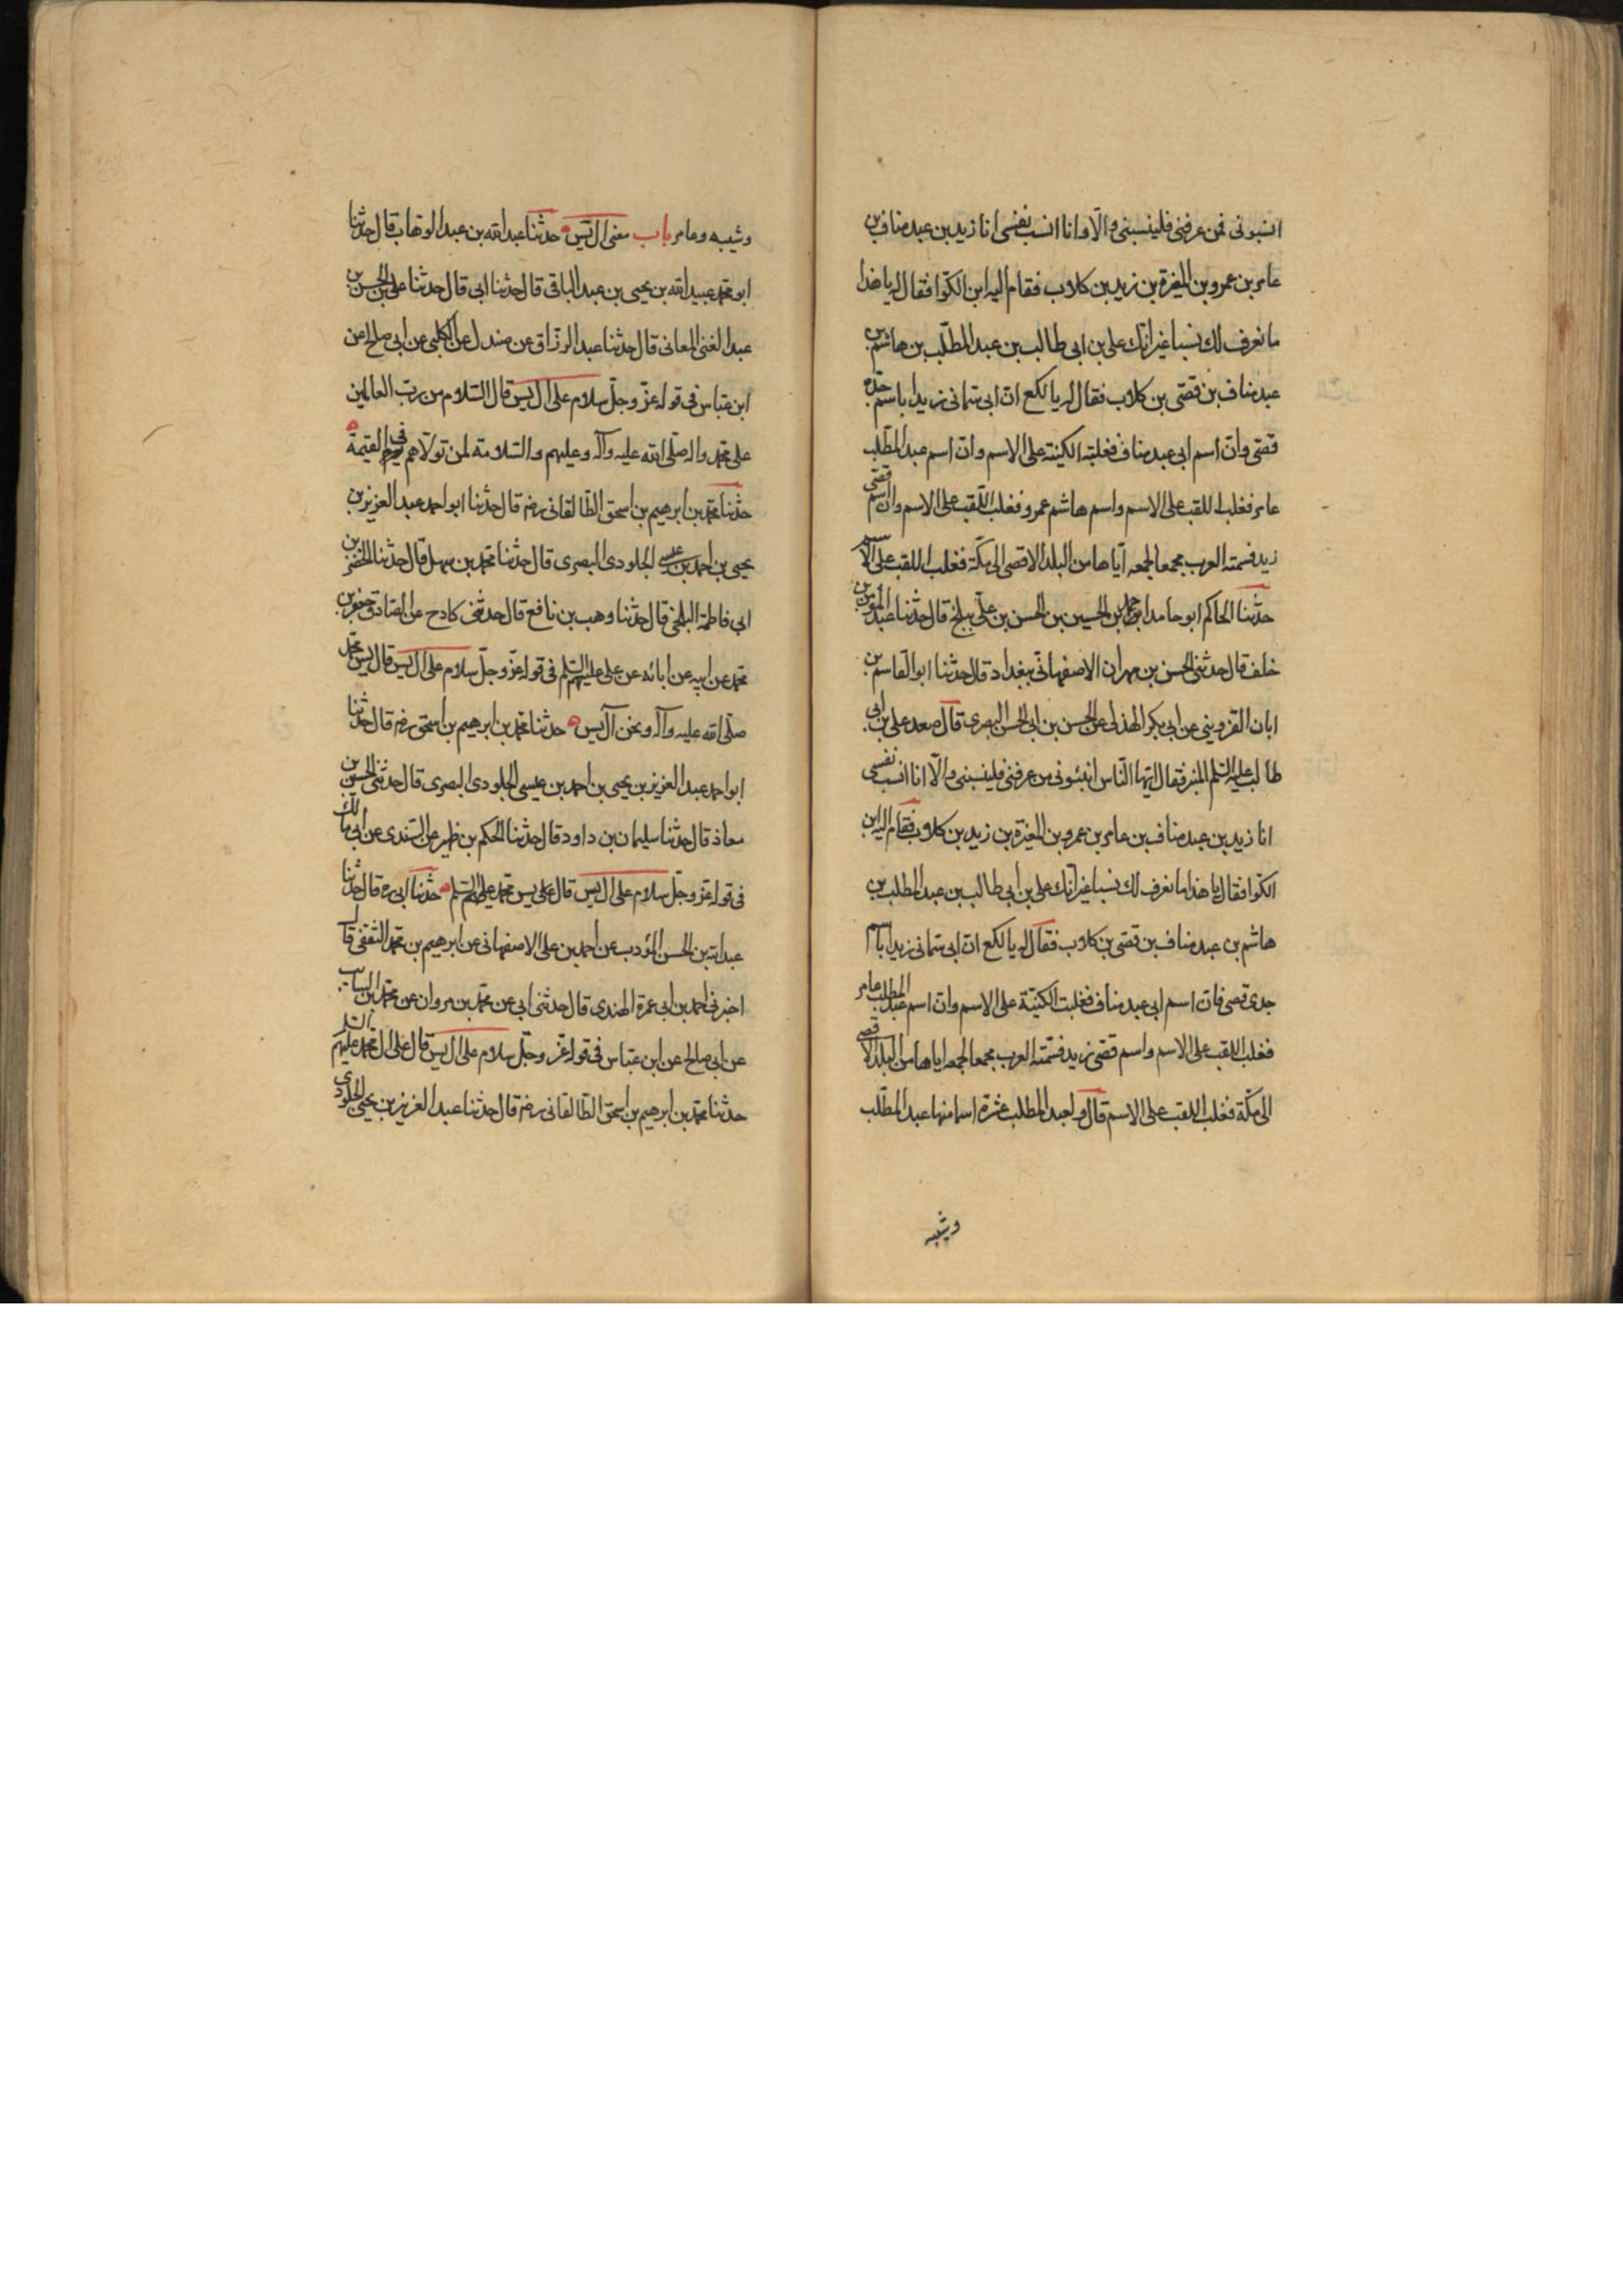 انسبونى فمن عرفنى فلينسبنى والّا وانا انسب نفسى انا زيد بن عبد مناف بن
عامر بن عمرو بن المغيرة بن زيد بن كلاب فقام اليه ابن الكوّا فقال له يا هذا
ما نعرف لك نسبا غير انّك على بن ابى طالب بن عبد المطّلب بن هاشم بن
عبد مناف بن قصّى بن كلاب فقال له يا لكع انّ ابى سمّانى زيدا باسم جدّه
قصّى وانّ اسم ابى عبد مناف فغلبته الكنية على الاسم وانّ اسم عبد المطّلب
عامر فغلب اللقب على الاسم واسم هاشم عمرو فغلب اللّقب على الاسم وان اسم قصّى
زيد فسمته العرب مجمعا لجمعه ايّاها من البلد الاقصى الى مكّة فغلب اللقب على الاسم
حدّثنا الحاكم ابو حامد احمد بن الحسين بن الحسن بن علّى ببلخ قال حدّثنا عبد المؤمن بن
خلف قال حدثنى الحسن بن مهران الاصفهانّى ببغداد قال حدّثنا ابو القاسم بن
ابان القزوينى عن ابى بكر الهذلى عن الحسن بن ابى الحسن البصرى قال صعد على بن ابى
طالب عليه السّلم المنبر فقال ايّها النّاس انبئونى من عرفنى فلينسبنى والّا انا انسب نفسى
انا زيد بن عبد مناف بن عامر بن عمرو بن المغيرة بن زيد بن كلاب فقام اليه ابن
الكوّا فقال يا هذا ما نعرف لك نسبا غير انّك على بن ابى طالب بن عبد المطلب بن
هاشم بن عبد مناف بن قصّى بن كلاب فقال له يا لكع انّ ابى سمّانى زيدا باسم
جدى قصى فانّ اسم ابى عبد مناف فغلبت الكنيّة على الاسم وانّ اسم عبد المطلب عامر
فغلب اللقب على الاسم واسم قصّى زيد فسمّته العرب مجمعا لجمعه اياها من البلد الاقصى
الى مكّة فغلب اللقب على الاسم قال ولعبد المطلب عشرة اسما منها عبد المطّلب
وشيبه
وشيبه وعامر باب معنى ال يس حدثنا عبد الله بن عبد الوهاب قال حدثنا
ابو محمد عبيد الله بن يحيى بن عبد الباقى قال حدثنا ابى قال حدثنا على بن الحسن بن
عبد الغنى المعانى قال حدثنا عبد الرزّاق عن مندل عن الكلبى عن ابى صالح عن
ابن عبّاس فى قوله عزّ وجلّ سلام على ال يس قال السّلام من ربّ العالمين
على محمّد واله صلّى الله عليه وآله وعليهم والسّلامة لمن تولّاهم فى يوم القيمة
حدّثنا محمّد بن ابرهيم بن اسحق الطّالقانى رضه قال حدّثنا ابو احمد عبد العزيز بن
يحيى بن احمد بن عيسى الجلودى البصرى قال حدّثنا محمّد بن سهل قال حدّثنا الخضر بن
ابى فاطمة البلخى قال حدّثنا وهب بن نافع قال حدثنى كادح عن الصّادق جعفر بن
محمّد عن ابيه عن ابائه عن على عليهم السّلم فى قوله عزّ وجلّ سلام على ال يس قال يس محمّد
صلّى الله عليه وآله ونحن آل يس حدثنا محمّد بن ابرهيم بن اسحق رضه قال حدّثنا
ابو احمد عبد العزيز بن يحيى بن احمد بن عيسى الجلودى البصرى قال حدثنى الحسين بن
معاذ قال حدّثنا سليمان بن داود قال حدّثنا الحكم بن ظهير عن السّندى عن ابى مالك
فى قوله عزّ وجلّ سلام على ال يس قال على يس محمّد عليهم السّلم حدّثنا ابى ره قال حدّثنا
عبد الله بن الحسن المؤدب عن احمد بن على الاصفهانى عن ابرهيم بن محمّد الثقفى قال
اخبرنى احمد بن ابى عمرة الهندى قال حدثنى ابى عن محمّد بن مروان عن محمّد بن السايب
عن ابى صالح عن ابن عبّاس فى قوله عزّ وجلّ سلام على ال يس قال على ال محمّد عليهم السّلم
حدثنا محمّد بن ابرهيم بن اسحق الطّالقانى رضه قال حدّثنا عبد العزيز بن يحيى الجلودى